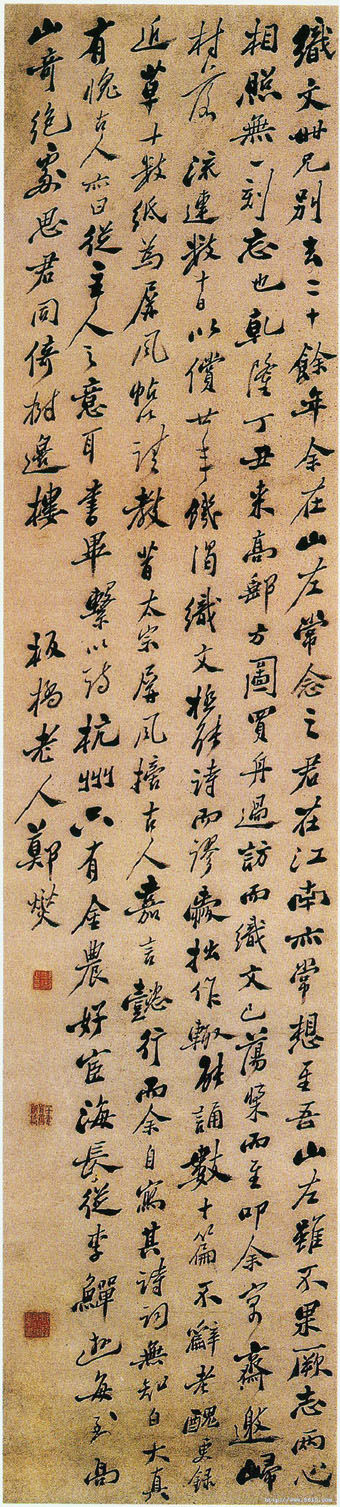 織文世兄別去二十餘年余在山左常念之君在江南亦常想至吾山左雖不果厥志兩心
相照無一刻忘也乾隆丁丑來高郵方圖買舟過訪而織文已蕩槳而至叩余寓齋邀歸
村落流連數十日以償廿年饑渴織文極能詩而謬愛拙作輒能誦數十篇不辭老醜更録
近草十數紙為屏風帖請教昔太宗屏風古人嘉言懿行而余自寫其詩詞無知自大真
有愧古人亦曰從主人之意耳書畢繫以詩杭州只有金農好宦海長從李鱓遊每到高
山奇絶處思君同倚樹邊樓
板橋老人鄭燮